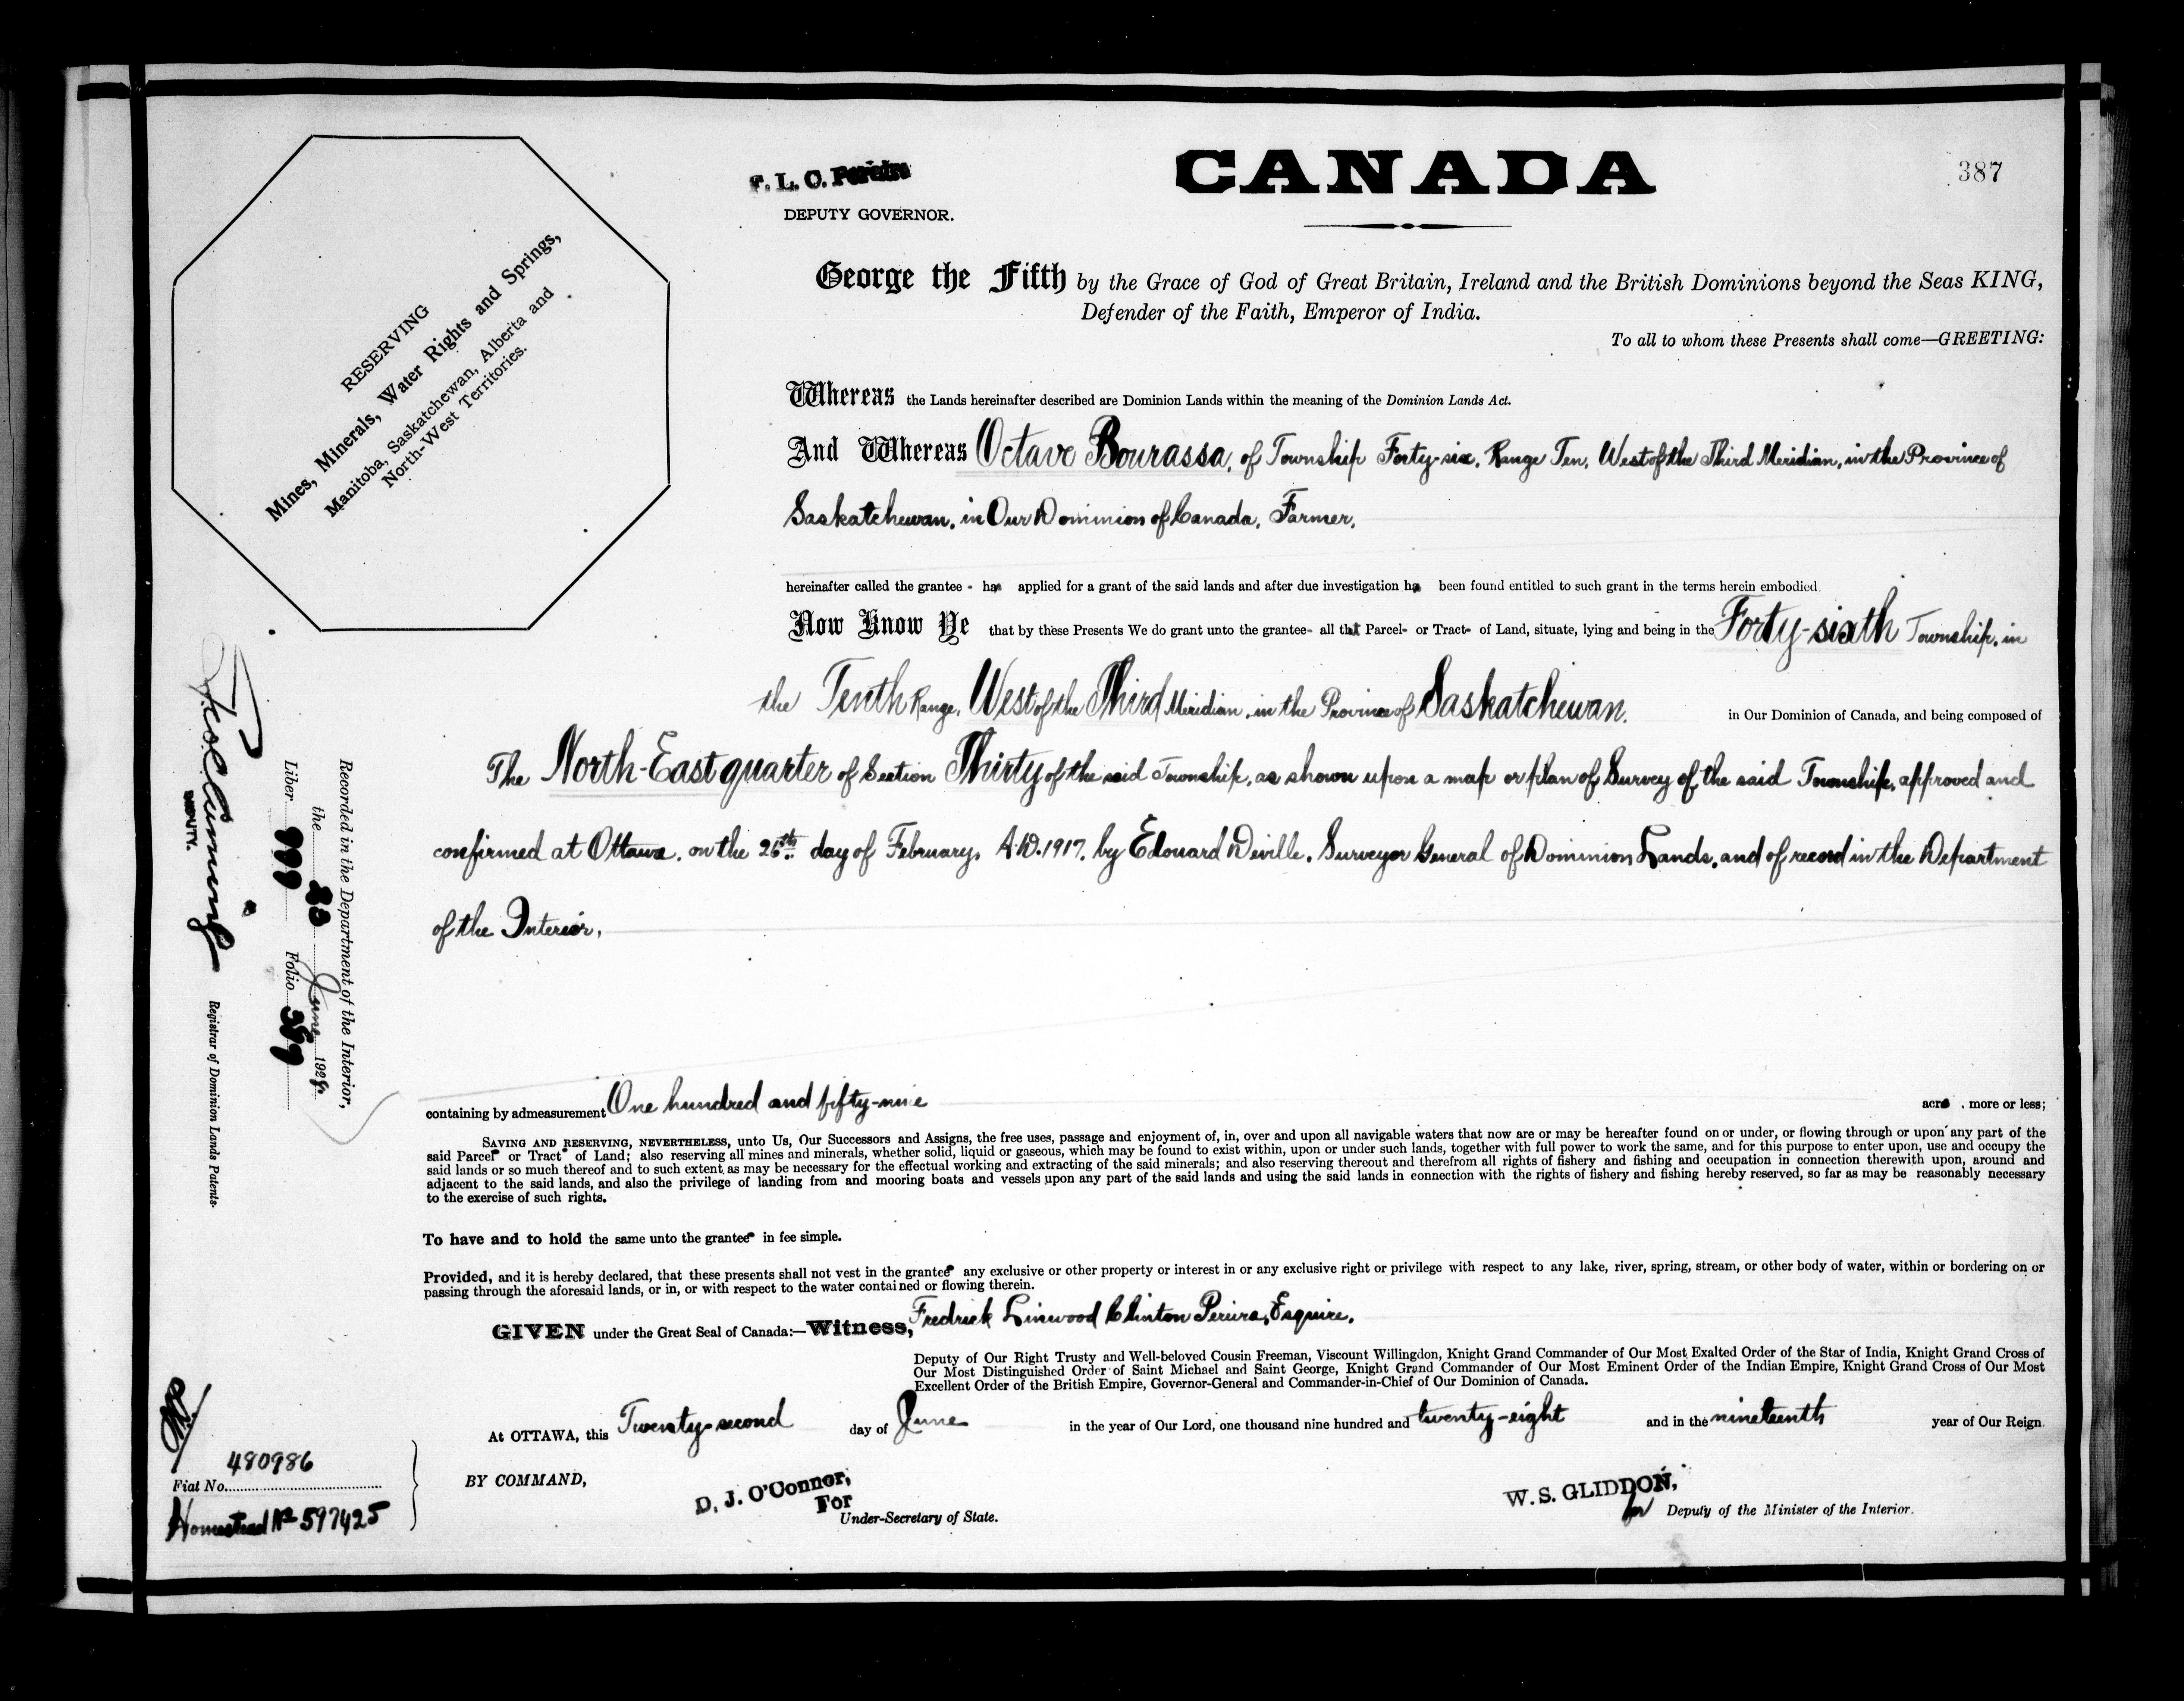 CANADA
387
F. L. C. Pereira
DEPUTY GOVERNOR.
RESERVING
Mines, Minerals, Water Rights and Springs,
Manitoba, Saskatchewan, Alberta and
North-West Territories.
George the Fifth by the Grace of God of Great Britain, Ireland and the British Dominions beyond the Seas KING,
Defender of the Faith, Emperor of India.
To all to whom these Presents shall come—GREETING:
Whereas the Lands hereinafter described are Dominion Lands within the meaning of the Dominion Lands Act.
And Whereas Octave Bourassa, of Township Forty-six, Range Ten, West of the Third Meridian, in the Province of
Saskatchewan, in Our Dominion of Canada, Farmer,
hereinafter called the grantee - has applied for a grant of the said lands and after due investigation has been found entitled to such grant in the terms herein embodied
Now Know Ye that by these Presents We do grant unto the grantee- all that Parcel- or Tract- of Land, situate, lying and being in the Forty-sixth Township, in
the Tenth Range, West of the Third Meridian, in the Province of Saskatchewan, in Our Dominion of Canada, and being composed of
The North-East quarter of Section Thirty of the said Township, as shown upon a map or plan of Survey of the said Township, approved and
confirmed at Ottawa, on the 26th day of February, A.D. 1917, by Edouard Deville, Surveyor General of Dominion Lands, and of record in the Department
of the Interior,
containing by admeasurement One hundred and fifty-nine acres, more or less;
SAVING AND RESERVING, NEVERTHELESS, unto Us, Our Successors and Assigns, the free uses, passage and enjoyment of, in, over and upon all navigable waters that now are or may be hereafter found on or under, or flowing through or upon any part of the
said Parcel or Tract of Land; also reserving all mines and minerals, whether solid, liquid or gaseous, which may be found to exist within, upon or under such lands, together with full power to work the same, and for this purpose to enter upon, use and occupy the
said lands or so much thereof and to such extent as may be necessary for the effectual working and extracting of the said minerals; and also reserving thereout and therefrom all rights of fishery and fishing and occupation in connection therewith upon, around and
adjacent to the said lands, and also the privilege of landing from and mooring boats and vessels upon any part of the said lands and using the said lands in connection with the rights of fishery and fishing hereby reserved, so far as may be reasonably necessary
to the exercise of such rights.
To have and to hold the same unto the grantee in fee simple.
Provided, and it is hereby declared, that these presents shall not vest in the grantee any exclusive or other property or interest in or any exclusive right or privilege with respect to any lake, river, spring, stream, or other body of water, within or bordering on or
passing through the aforesaid lands, or in, or with respect to the water contained or flowing therein.
GIVEN under the Great Seal of Canada:—Witness, Fredrick Linwood Clinton Pereira, Esquire,
Deputy of Our Right Trusty and Well-beloved Cousin Freeman, Viscount Willingdon, Knight Grand Commander of Our Most Exalted Order of the Star of India, Knight Grand Cross of
Our Most Distinguished Order of Saint Michael and Saint George, Knight Grand Commander of Our Most Eminent Order of the Indian Empire, Knight Grand Cross of Our Most
Excellent Order of the British Empire, Governor-General and Commander-in-Chief of Our Dominion of Canada.
At OTTAWA, this Twenty-second day of June in the year of Our Lord, one thousand nine hundred and twenty-eight and in the nineteenth year of Our Reign.
BY COMMAND,
D. J. O'Connor,
For
Under-Secretary of State.
W. S. GLIDDON,
for Deputy of the Minister of the Interior.
Recorded in the Department of the Interior,
the June 1928.
Liber Folio
DEPUTY.
Registrar of Dominion Lands Patents.
Fiat No. 480986
Homestead No 597425